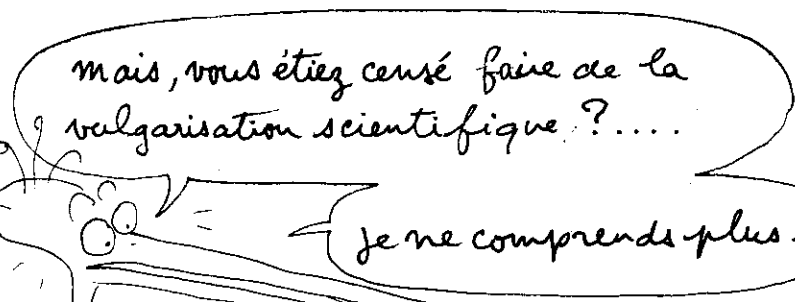 mais, vous étiez censé faire de la
vulgarisation scientifique ?....
je ne comprends plus.